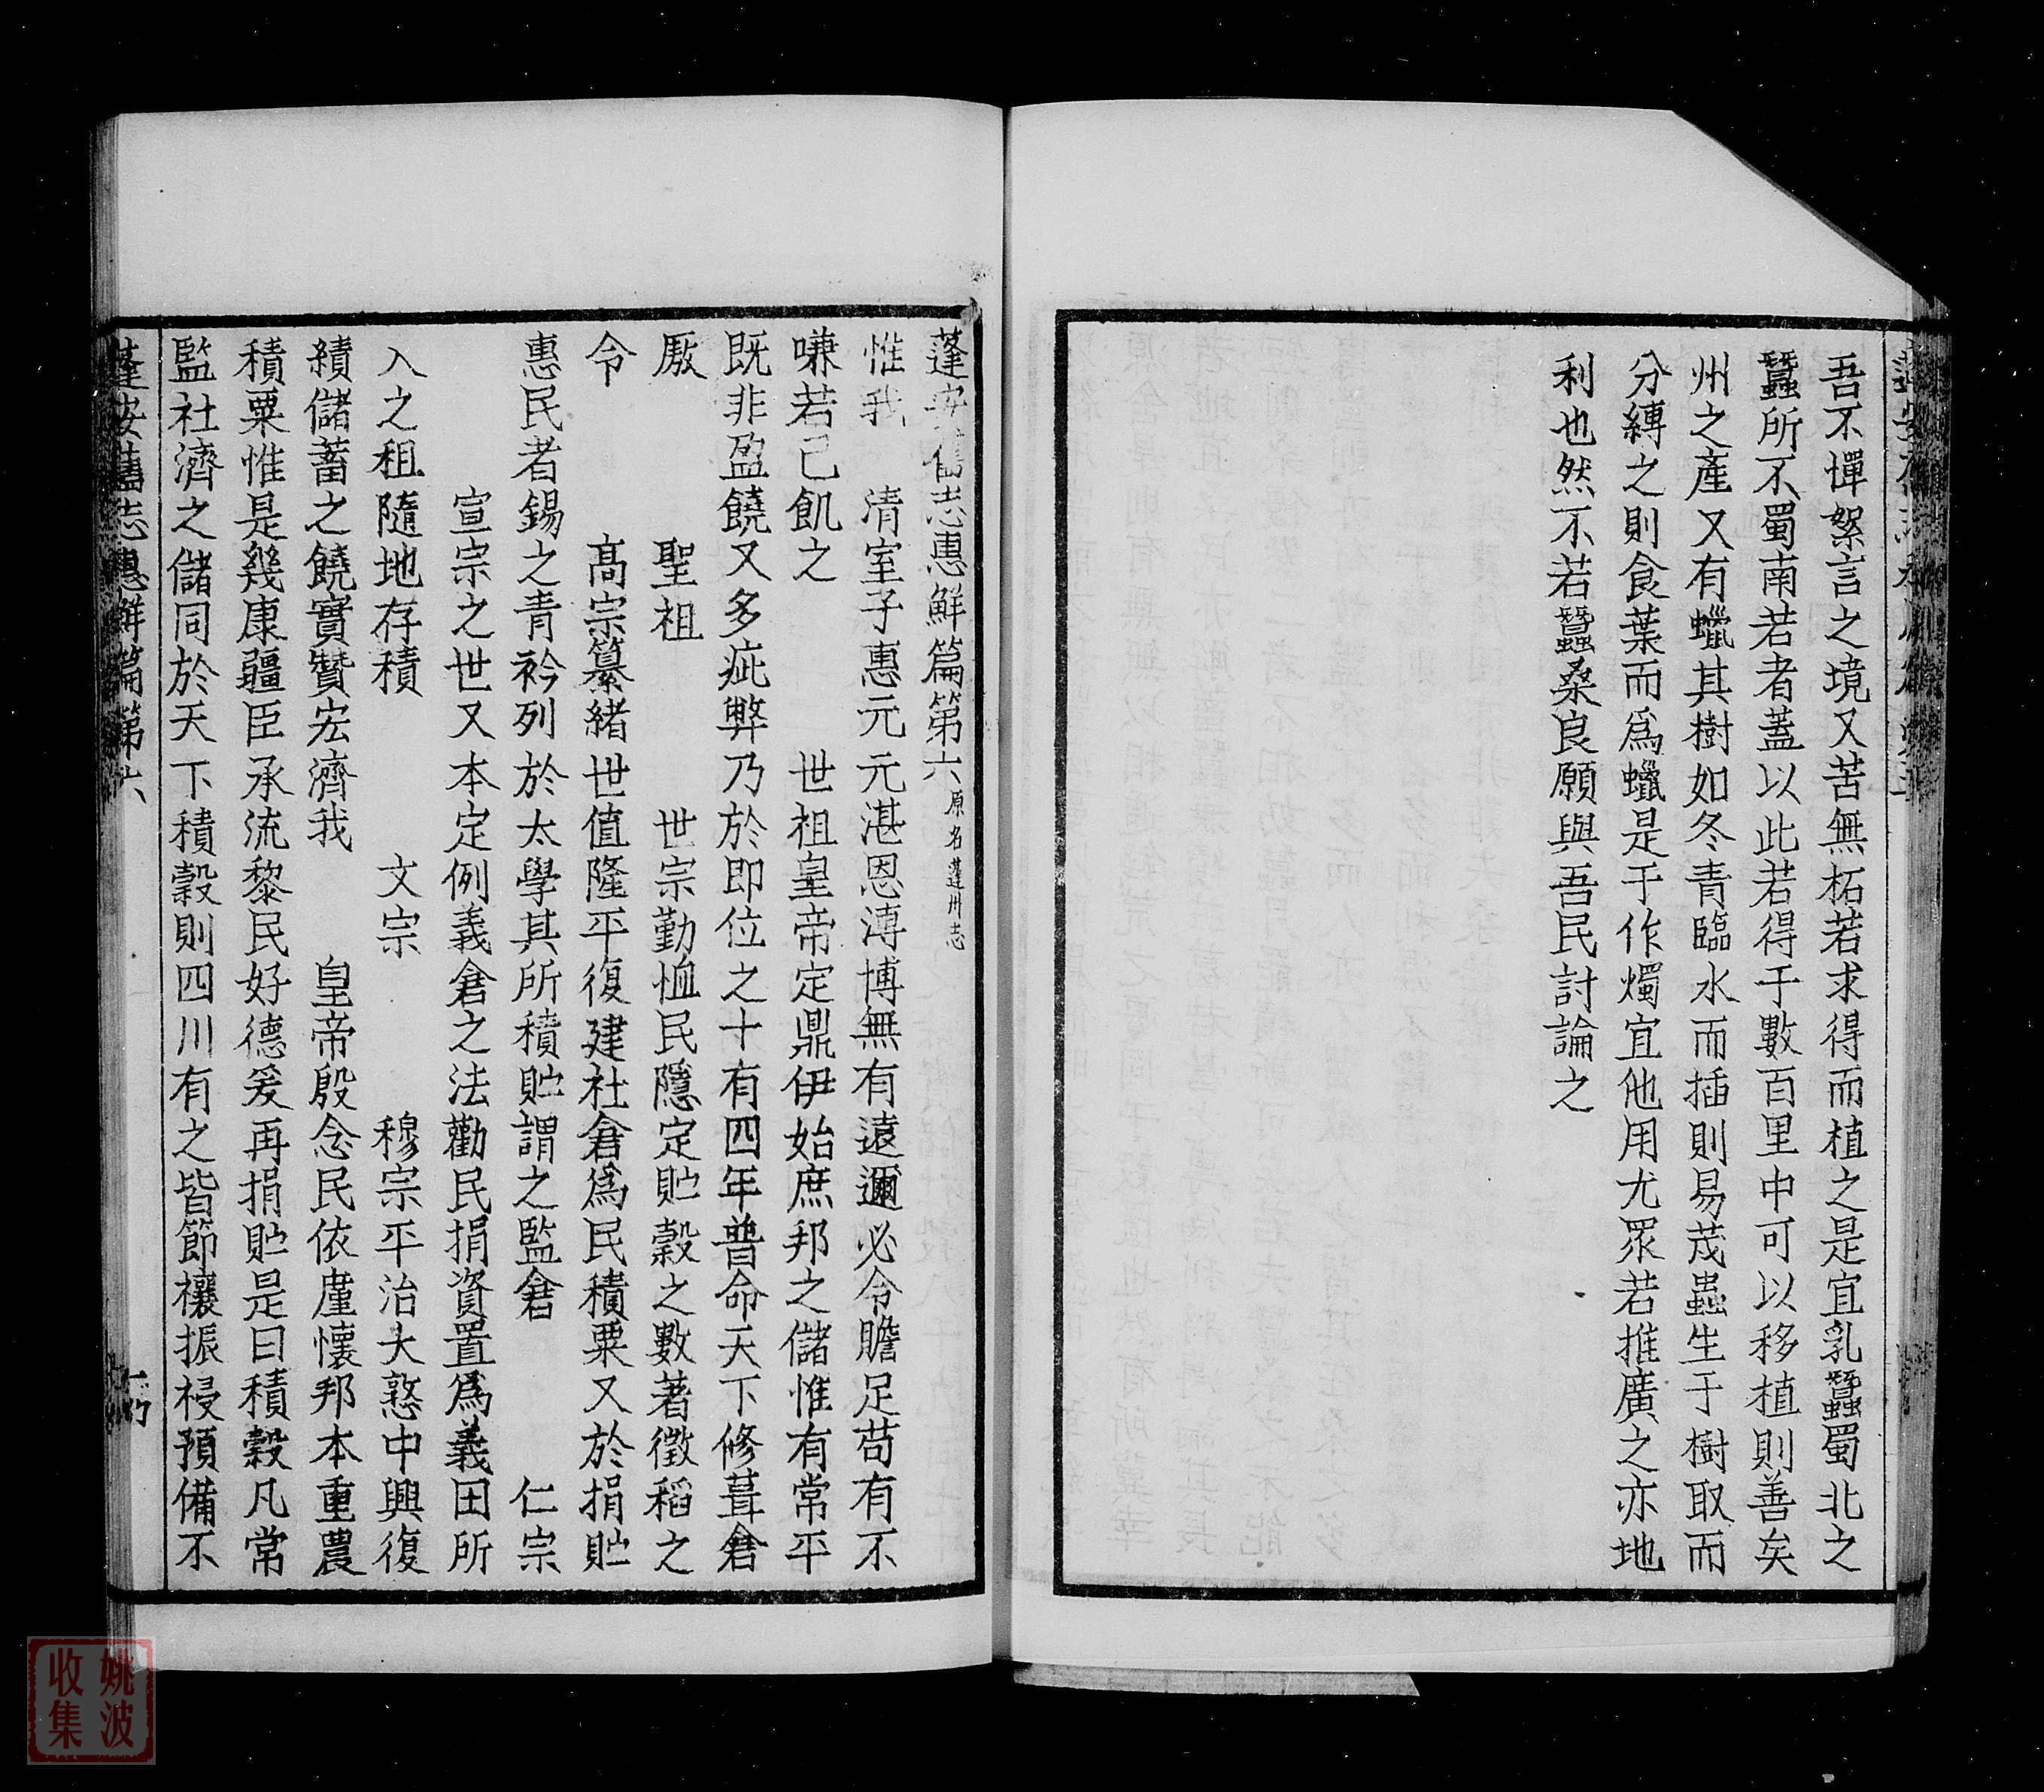 吾不憚絮言之境又苦無柘若求得而植之是宜乳蠶蜀北之
蠶所不蜀南若者蓋以此若得于數百里中可以移植則善矣
州之產又有蠟其樹如冬青臨水而插則易茂蟲生于樹取而
分縛之則食葉而為蠟是于作燭宜他用尤眾若推廣之亦地
利也然不若蠶桑良願與吾民討論之
蓬安舊志惠鮮篇第六原名蓬州志
惟我 清室子惠元元湛恩溥博無有遠邇必令贍足苟有不
嗛若己飢之 世祖皇帝定鼎伊始庶邦之儲惟有常平
既非盈饒又多疵弊乃於即位之十有四年普命天下修葺倉
厫 聖祖 世宗勤恤民隱定貯穀之數著徵稻之
令 高宗纂緒世值隆平復建社倉為民積粟又於捐貯
惠民者錫之青衿列於太學其所積貯謂之監倉 仁宗
宣宗之世又本定例義倉之法勸民捐資置為義田所
入之租隨地存積 文宗 穆宗平治大憝中興復
績儲蓄之饒實贊宏濟我 皇帝殷念民依廑懷邦本重農
積粟惟是幾康疆臣承流黎民好德爰再捐貯是曰積穀凡常
監社濟之儲同於天下積穀則四川有之皆節禳振祲預備不
蓬安舊志惠鮮篇第六
姚波
收集